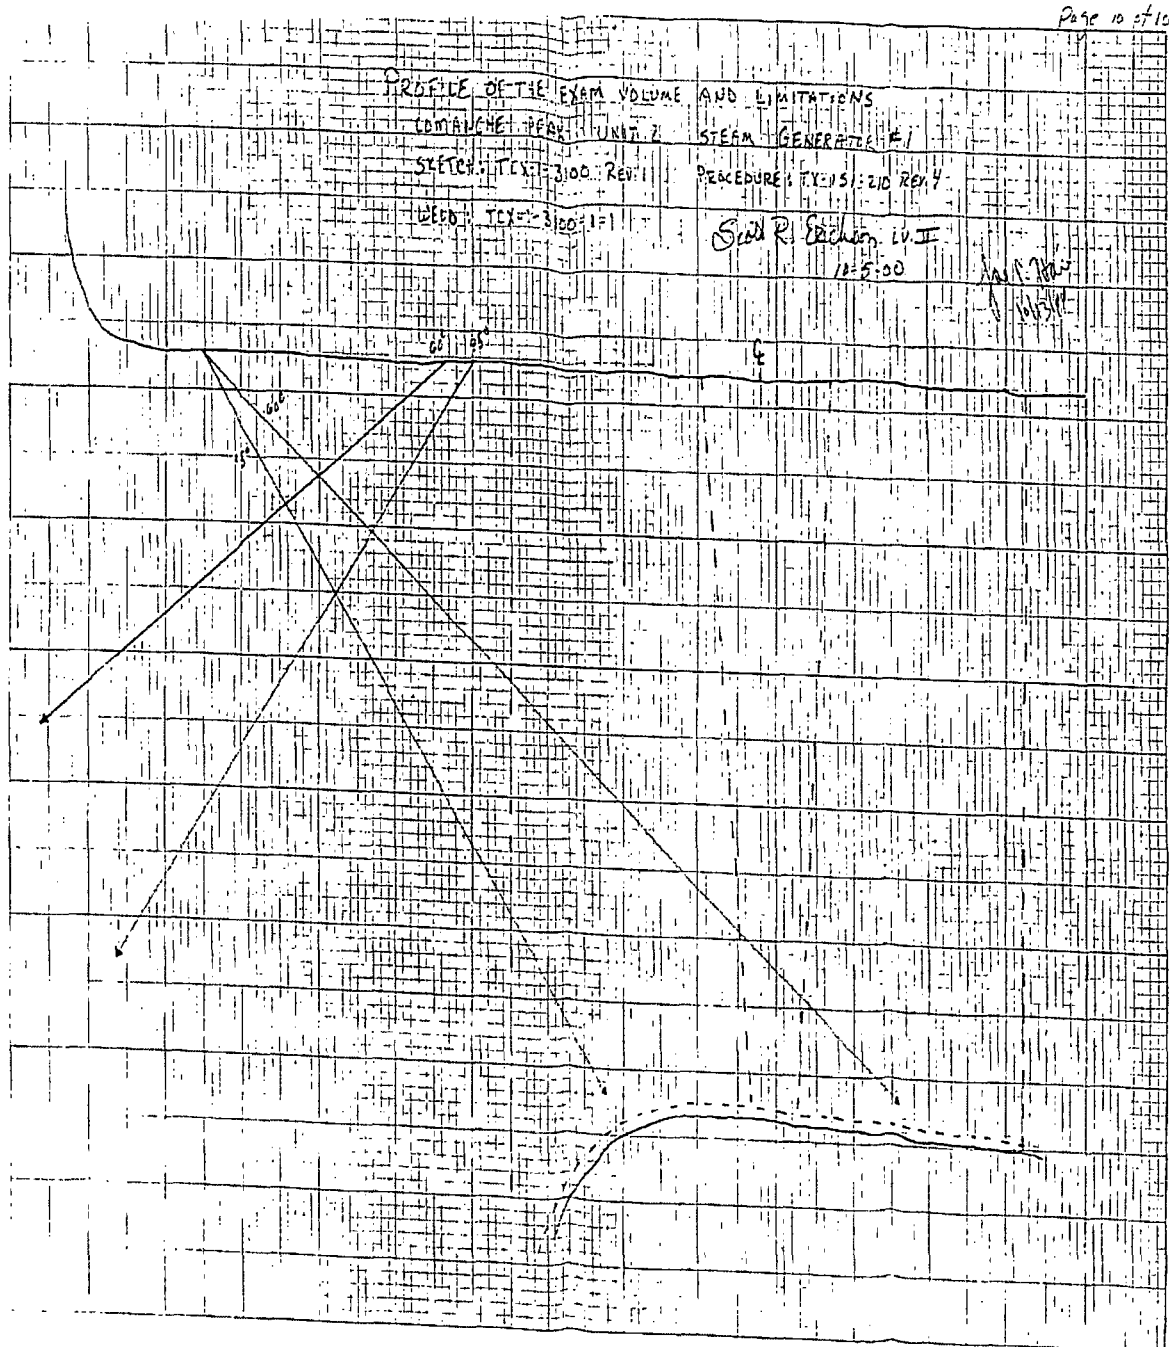 Page 10 of 10
PROFILE OF THE EXAM VOLUME AND LIMITATIONS
COMANCHE PEAK UNIT 2 STEAM GENERATOR #1
SKETCH: TCX-1-3100 REV. 1 PROCEDURE: TX-ISI-210 REV. 4
WELD: TCX-1-3100-1-1
Scott R. LV. II
10-5-00
60° 45°
℄
60°
45°